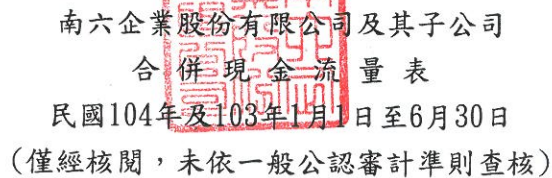 南六企業股份有限公司及其子公司
合併現金流量表
民國104年及103年1月1日至6月30日
(僅經核閱，未依一般公認審計準則查核)